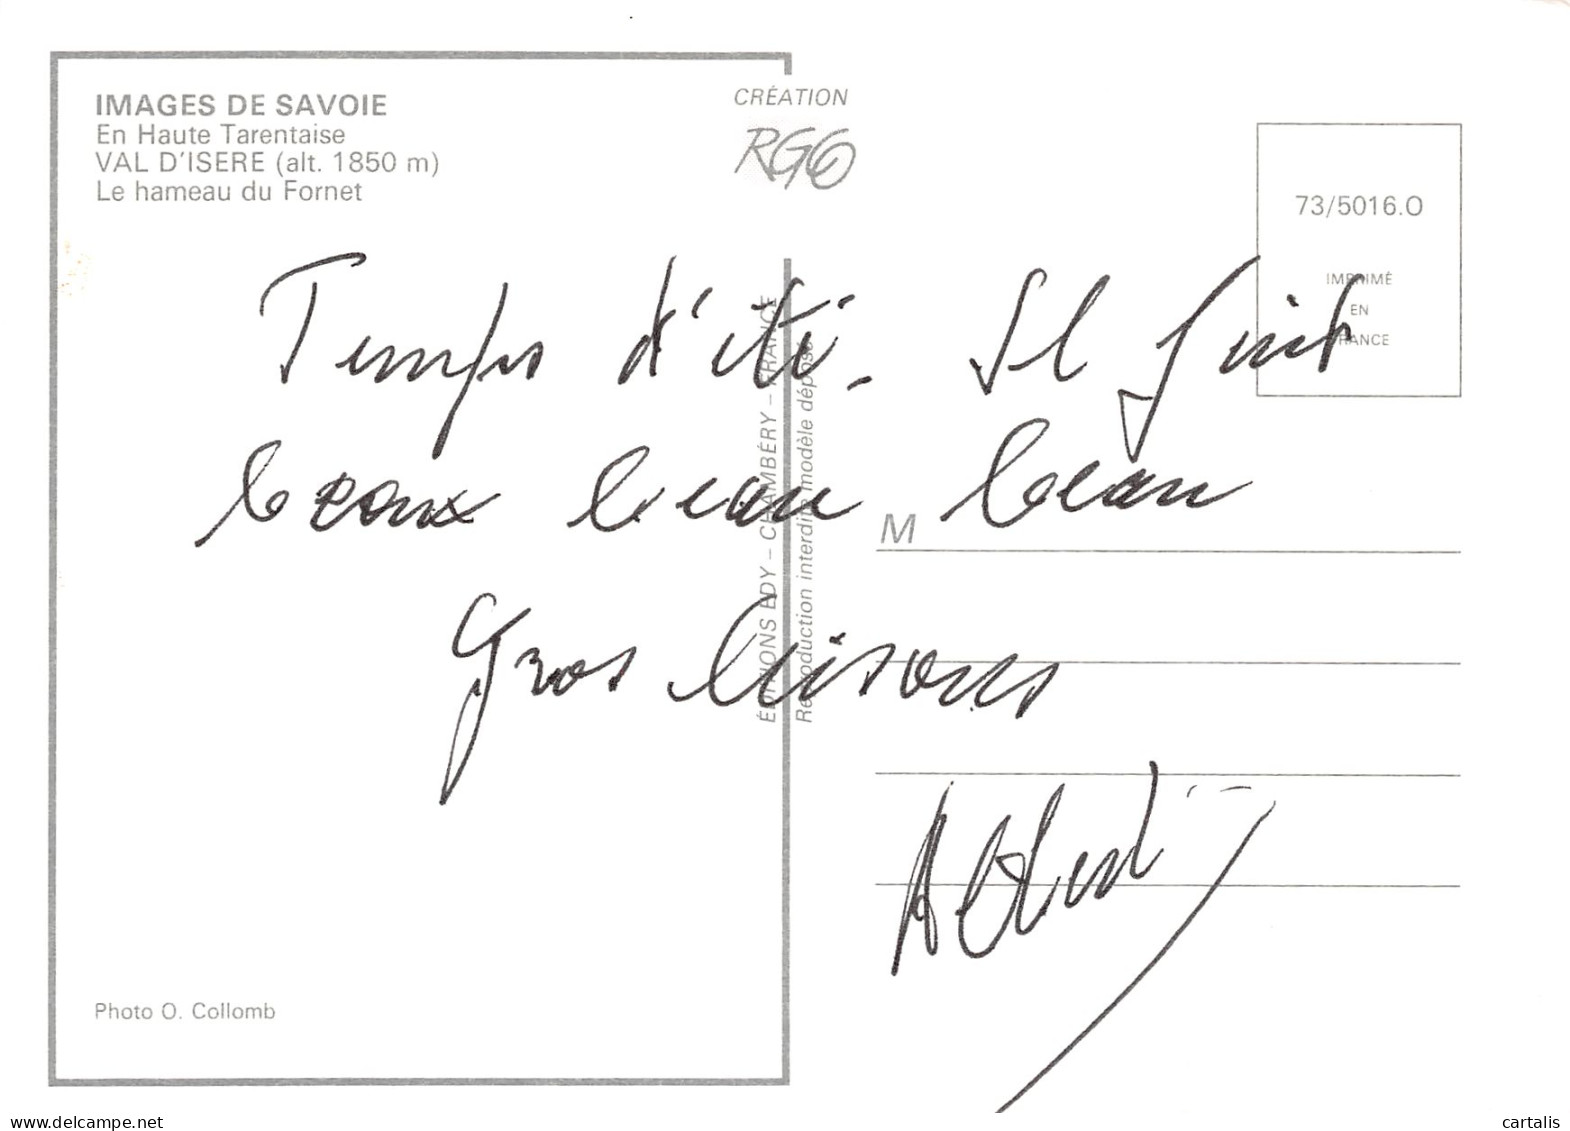 IMAGES DE SAVOIE
En Haute Tarentaise
VAL D'ISERE (alt. 1850 m)
Le hameau du Fornet
CRÉATION
RGO
73/5016.O
IMPRIMÉ
EN
FRANCE
Temps d'été. Il fait
beaux beau beau
Gros bisous
Albert
M
ÉDITIONS EDY – CHAMBÉRY – FRANCE
Reproduction interdite modèle déposé
Photo O. Collomb
cartalis